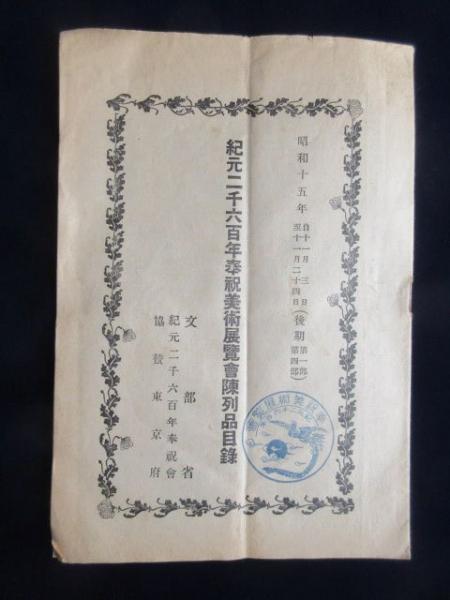 昭和十五年
自十一月三日
至十一月二十四日
(後期 第一部
第四部)
紀元二千六百年奉祝美術展覽會陳列品目錄
文部省
紀元二千六百年奉祝會
協贊東京府